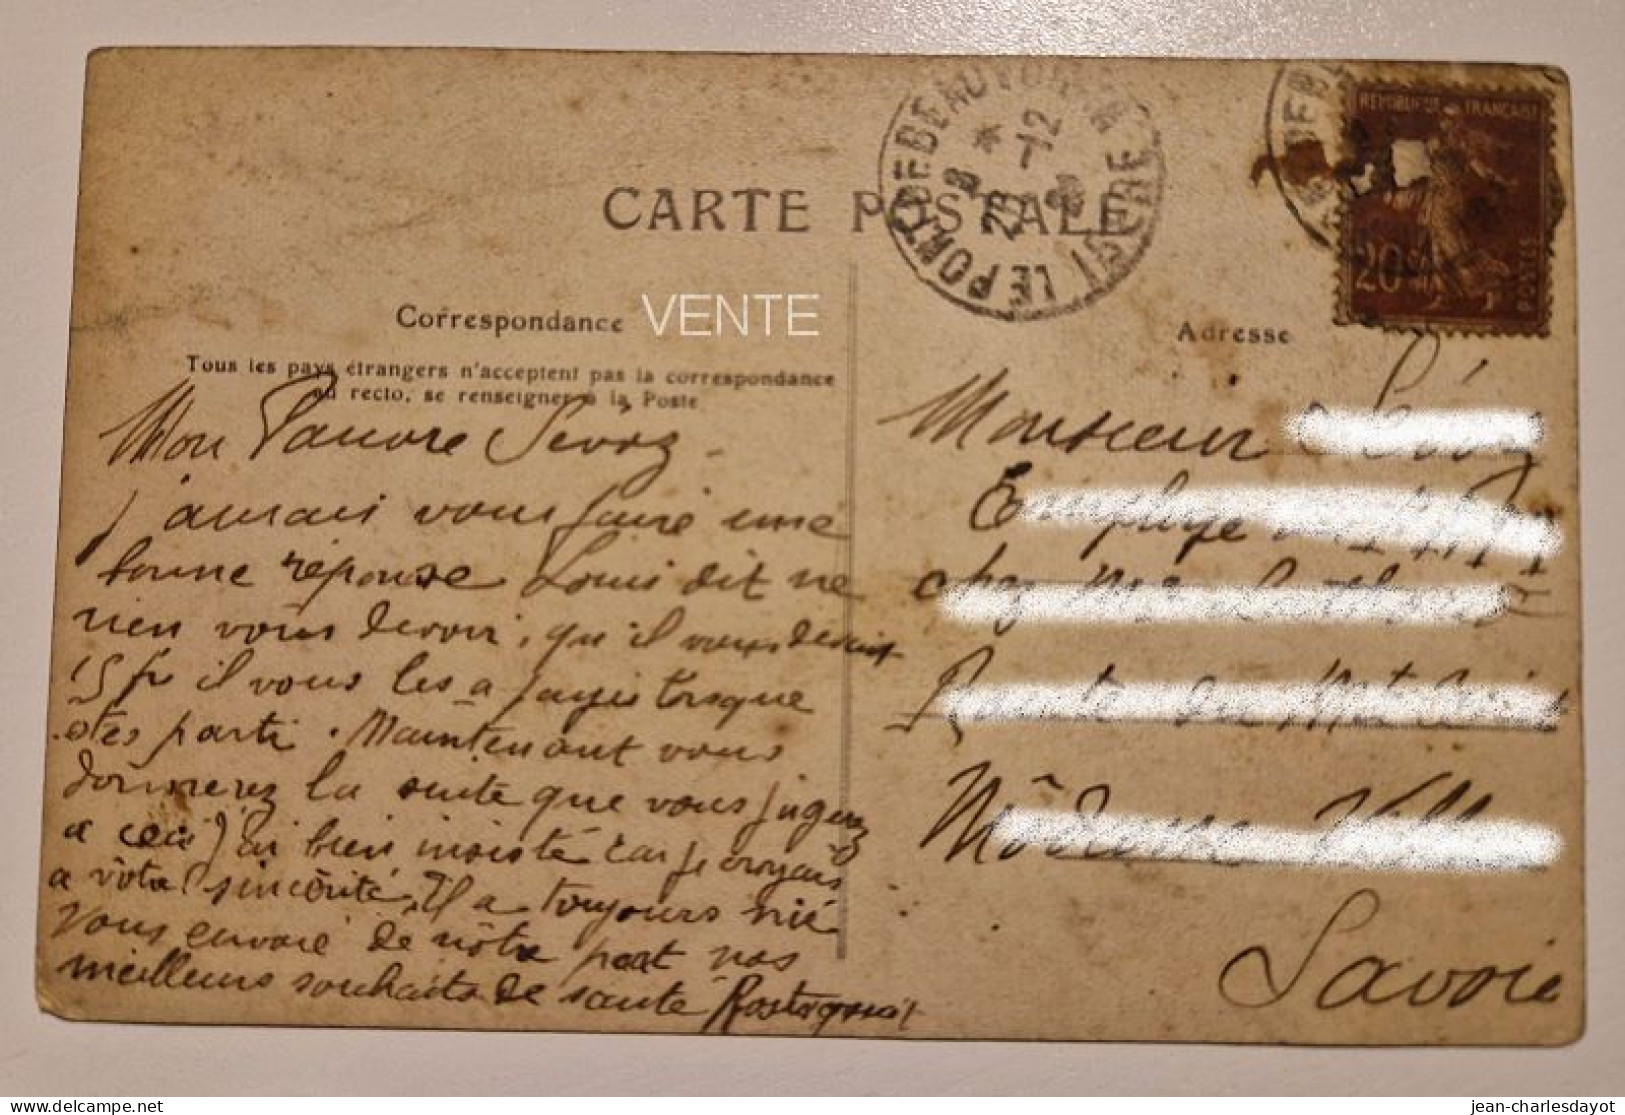 CARTE POSTALE
LE PONT DE BEAUVOISIN ISERE
* 8 29 -12
REPUBLIQUE FRANÇAISE
20c
POSTES
Correspondance
VENTE
Adresse
Tous les pays étrangers n'acceptent pas la correspondance
au recto, se renseigner à la Poste
Mon Pauvre Sévoz
j'aurais voulu faire une
bonne réponse Louis dit ne
rien vous devoir, qu'il vous devait
15 fr il vous les a payés lorsque
êtes parti. Maintenant vous
donnerez la suite que vous jugerez
a ceci j'ai bien insisté car je croyais
a votre sincérité. Il a toujours nié
Vous envoie de nôtre part nos
meilleurs souhaits de santé Rostagnat
Monsieur Sévoz
Employé
chez
Route de
Modane
Savoie
jean-charlesdayot